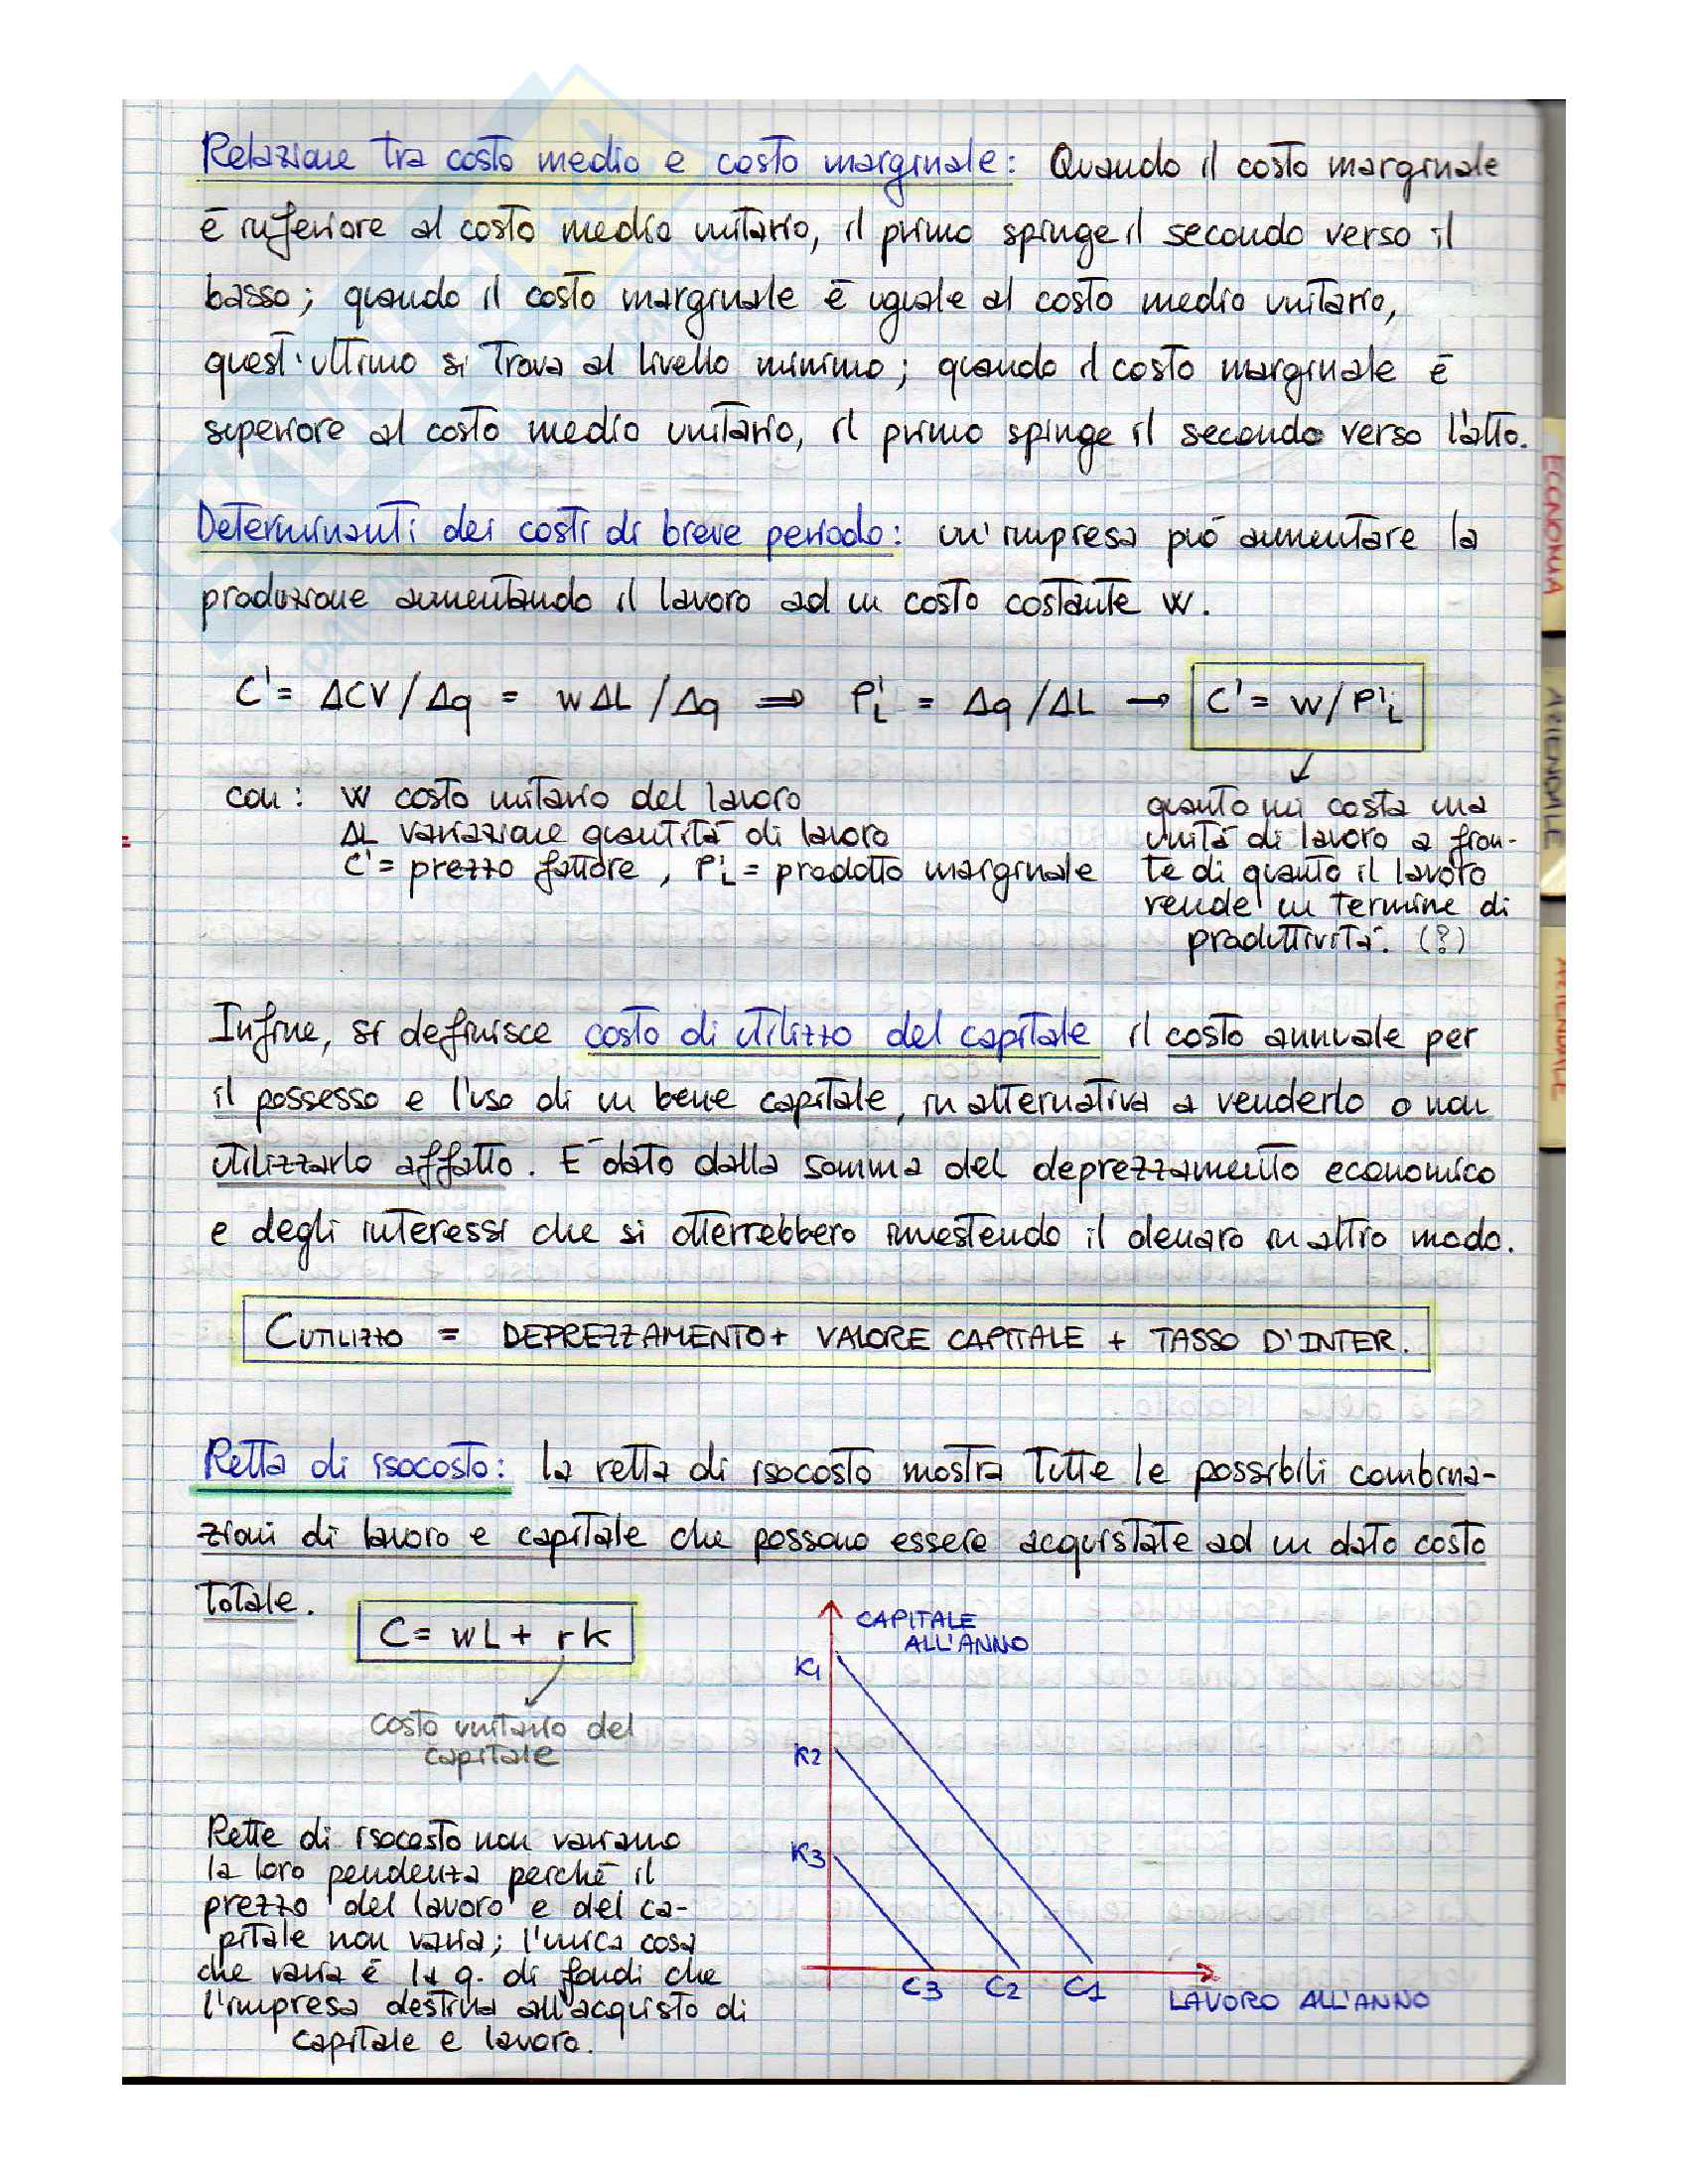 Relazione tra costo medio e costo marginale: Quando il costo marginale
è inferiore al costo medio unitario, il primo spinge il secondo verso il
basso; quando il costo marginale è uguale al costo medio unitario,
quest'ultimo si trova al livello minimo; quando il costo marginale è
superiore al costo medio unitario, il primo spinge il secondo verso l'alto.
Determinanti dei costi di breve periodo: un'impresa può aumentare la
produzione aumentando il lavoro ad un costo costante w.
C' = ΔCV/Δq = wΔL/Δq ⇒ P'L = Δq/ΔL → C' = w/P'L
con: w costo unitario del lavoro
ΔL variazione quantità di lavoro
C' = prezzo fattore, P'L = prodotto marginale
quanto mi costa una
unità di lavoro a fron-
te di quanto il lavoro
rende in termine di
produttività. (?)
Infine, si definisce costo di utilizzo del capitale il costo annuale per
il possesso e l'uso di un bene capitale, in alternativa a venderlo o non
utilizzarlo affatto. È dato dalla somma del deprezzamento economico
e degli interessi che si otterrebbero investendo il denaro in altro modo.
CUTILIZZO = DEPREZZAMENTO + VALORE CAPITALE + TASSO D'INTER.
Retta di isocosto: la retta di isocosto mostra tutte le possibili combina-
zioni di lavoro e capitale che possono essere acquistate ad un dato costo
totale.
C = wL + rk
costo unitario del
capitale
Rette di isocosto non variano
la loro pendenza perché il
prezzo del lavoro e del ca-
pitale non varia; l'unica cosa
che varia è la q. di fondi che
l'impresa destina all'acquisto di
capitale e lavoro.
CAPITALE
ALL'ANNO
K1
K2
K3
C3 C2 C1
LAVORO ALL'ANNO
ECONOMIA
AZIENDALE
AZIENDALE